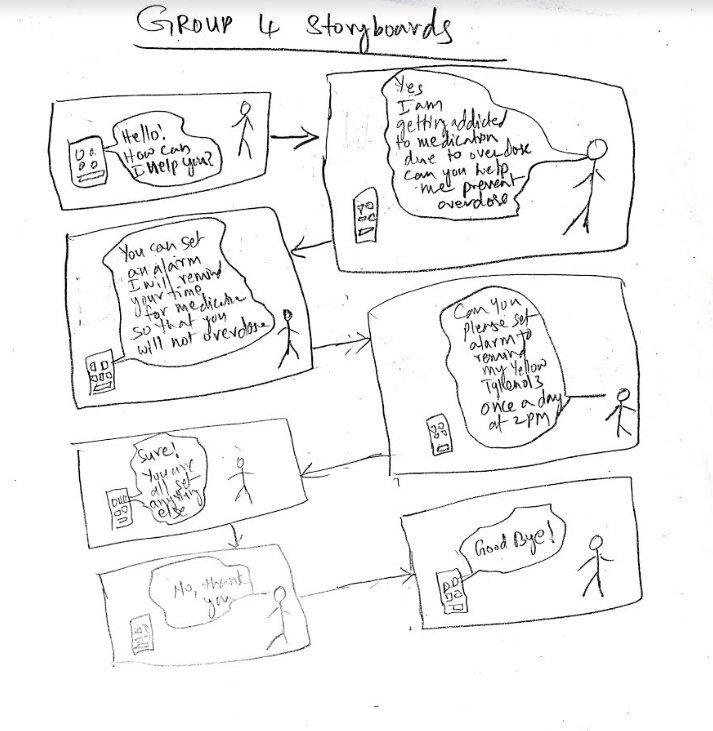 GROUP 4 Storyboards
Hello!
How can
I help you?
Yes
I am
getting addicted
to medication
due to overdose
can you help
me prevent
overdose
You can set
an alarm
I will remind
your time
for medication
so that you
will not overdose
Can you
please set
alarm to
remind
my Yellow
Tylenol 3
once a day
at 2PM
Sure!
You are
all set
anything
else
No, thank
you
Good Bye!